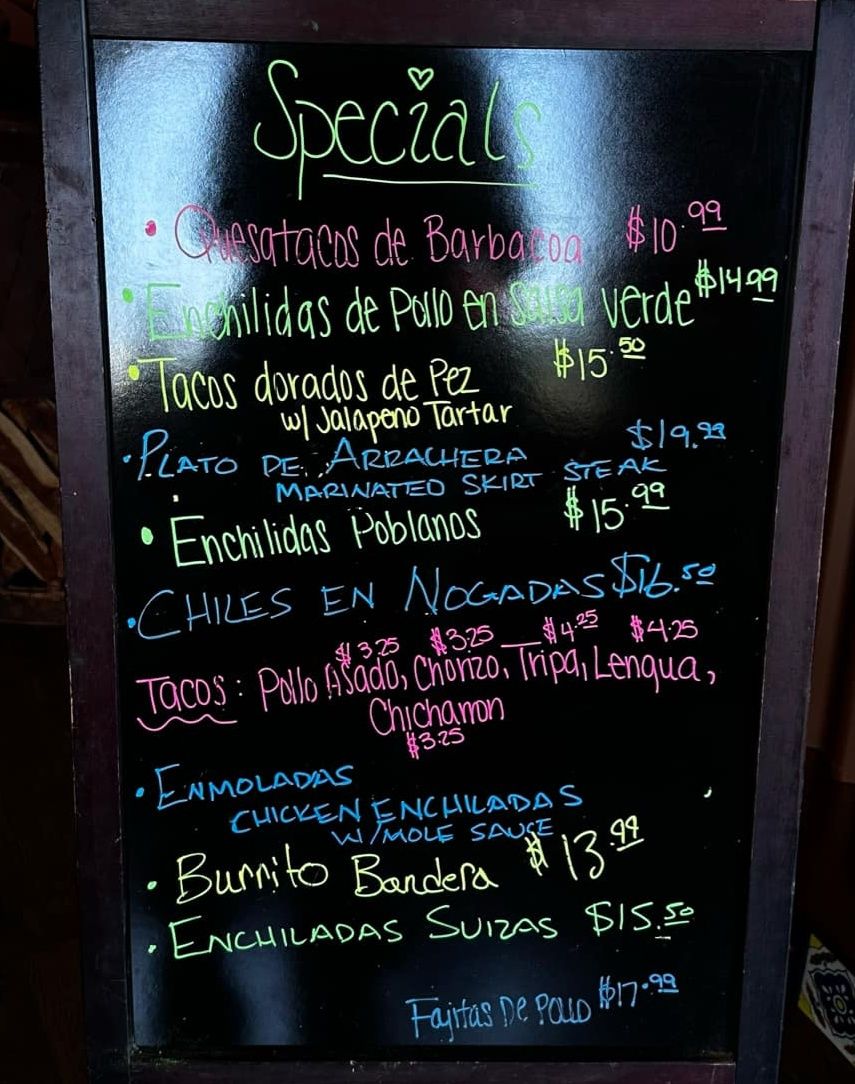 Specials
• Quesatacos de Barbacoa $10.99
• Enchilidas de Pollo en Salsa verde $14.99
• Tacos dorados de Pez $15.50
w/ Jalapeno Tartar
• PLATO DE ARRACHERA $19.99
MARINATED SKIRT STEAK
• Enchilidas Poblanos $15.99
• CHILES EN NOGADAS $16.50
$13.25 $3.25 $4.25 $4.25
Tacos: Pollo Asado, Chorizo, Tripa, Lengua,
Chicharron
$3.25
• ENMOLADAS
CHICKEN ENCHILADAS
W/MOLE SAUCE
• Burrito Bandera $13.99
• ENCHILADAS SUIZAS $15.50
Fajitas De Pollo $17.99